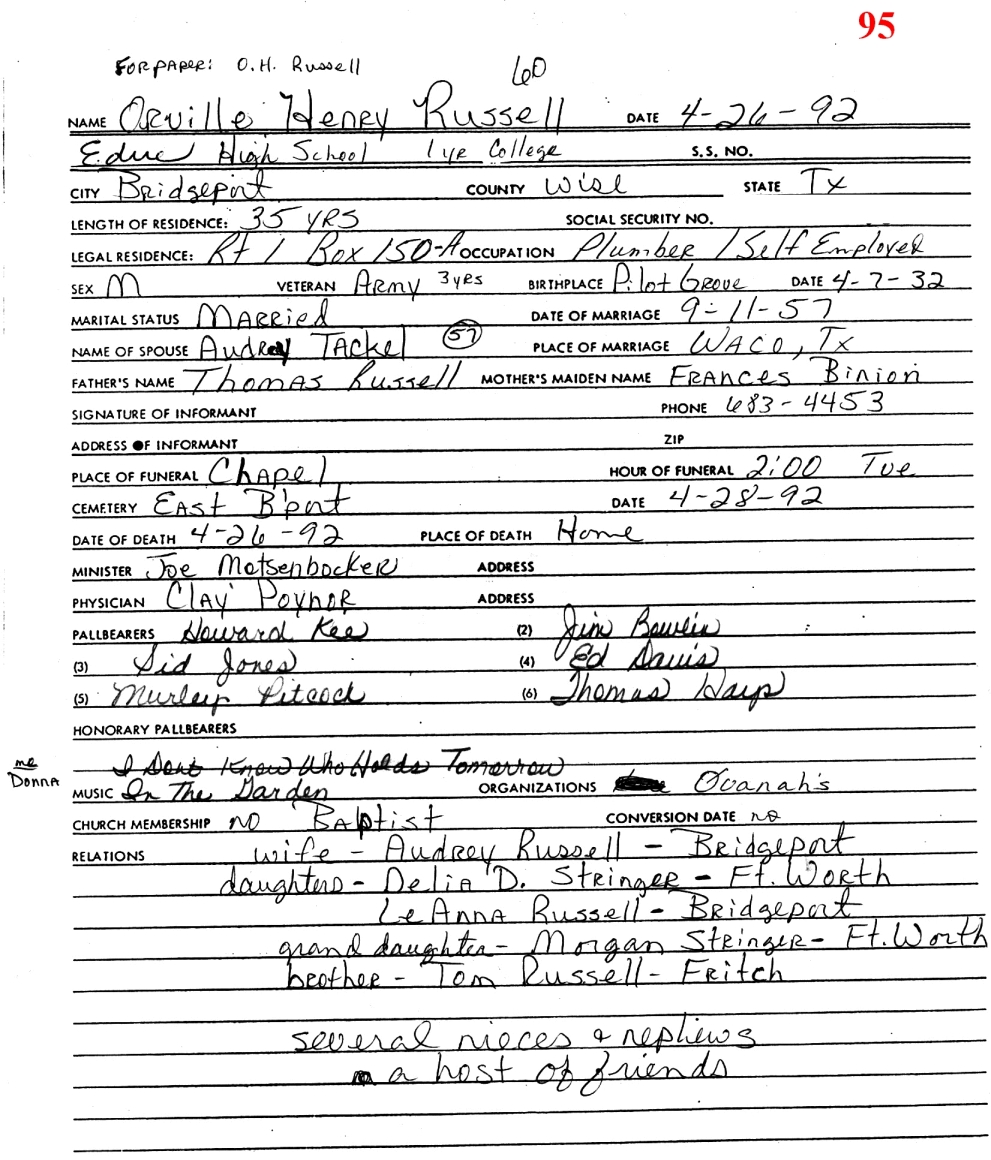 95
FOR PAPER: O.H. Russell 60
NAME Orville Henry Russell DATE 4-26-92
Educ High School 1 yr College S.S. NO.
CITY Bridgeport COUNTY Wise STATE Tx
LENGTH OF RESIDENCE: 35 YRS SOCIAL SECURITY NO.
LEGAL RESIDENCE: Rt 1 Box 150-A OCCUPATION Plumber / Self Employed
SEX M VETERAN Army 3 yrs BIRTHPLACE Pilot Grove DATE 4-7-32
MARITAL STATUS Married DATE OF MARRIAGE 9-11-57
NAME OF SPOUSE Audrey Tackel 57 PLACE OF MARRIAGE WACO, Tx
FATHER'S NAME Thomas Russell MOTHER'S MAIDEN NAME Frances Binion
SIGNATURE OF INFORMANT PHONE 683-4453
ADDRESS OF INFORMANT ZIP
PLACE OF FUNERAL Chapel HOUR OF FUNERAL 2:00 Tue
CEMETERY East B'port DATE 4-28-92
DATE OF DEATH 4-26-92 PLACE OF DEATH Home
MINISTER Joe Motsenbocker ADDRESS
PHYSICIAN Clay Poynor ADDRESS
PALLBEARERS Howard Kee (2) Jim Bowlin
(3) Sid Jones (4) Ed Davis
(5) Pitcock (6) Thomas Harp
HONORARY PALLBEARERS
me I Dont Know Who Holds Tomorrow
Donna MUSIC In The Garden ORGANIZATIONS Ovanah's
CHURCH MEMBERSHIP no Baptist CONVERSION DATE no
RELATIONS wife - Audrey Russell - Bridgeport
daughters - Delia D. Stringer - Ft. Worth
LeAnna Russell - Bridgeport
grand daughter - Morgan Stringer - Ft. Worth
brother - Tom Russell - Fritch
several nieces & nephews
a host of friends